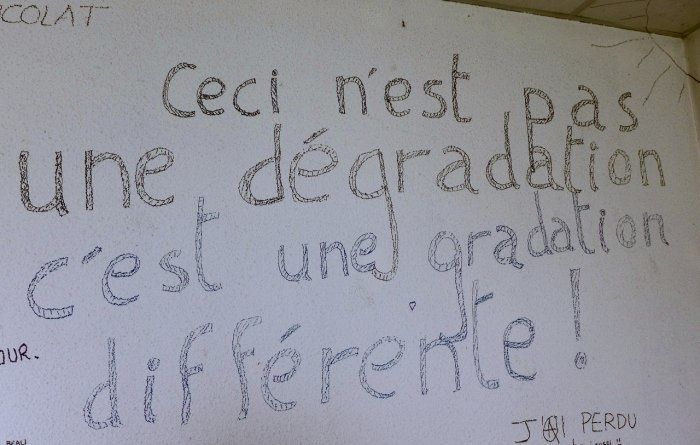 COLAT
Ceci n'est pas
une dégradation
c'est une gradation
différente !
OUR.
J'AI PERDU
BEAU